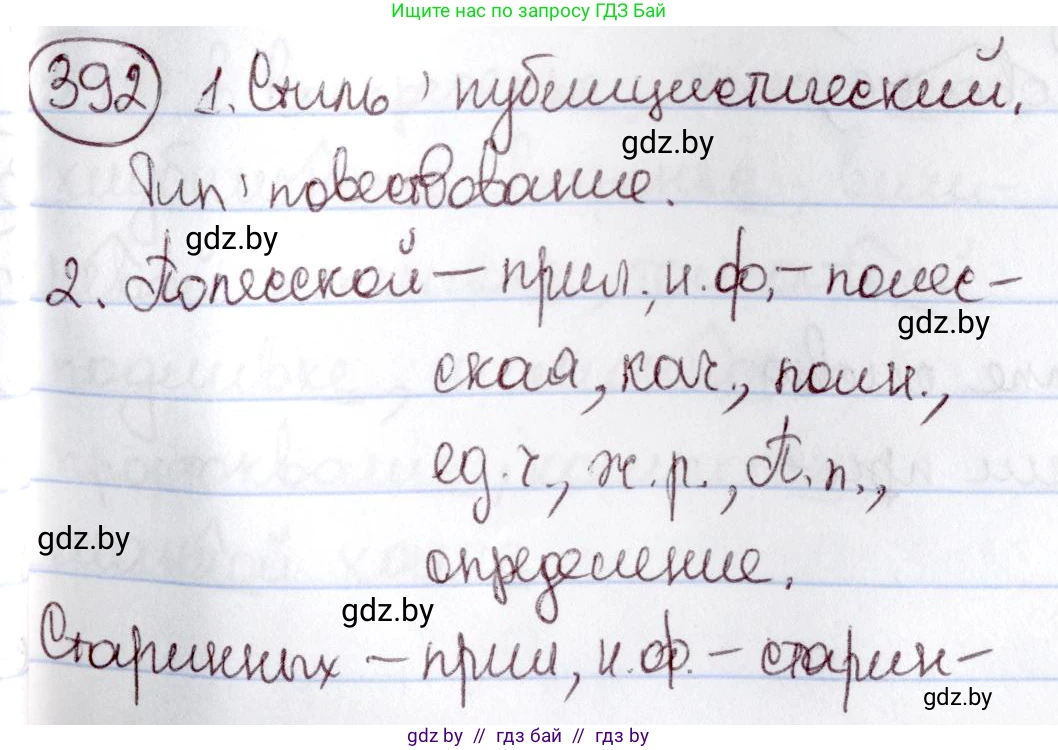 Ищите нас по запросу ГДЗ Бай
392 1. Стиль, публицистический.
gdz.by
Тип, повествование.
gdz.by
2. Полесской – прил., н.ф. – полес-
gdz.by
ская, кач., полн.,
ед.ч., ж.р., П.п.,
gdz.by
определение.
gdz.by
Старинных – прил, н.ф. – старин-
gdz.by
gdz.by // гдз бай // gdz by